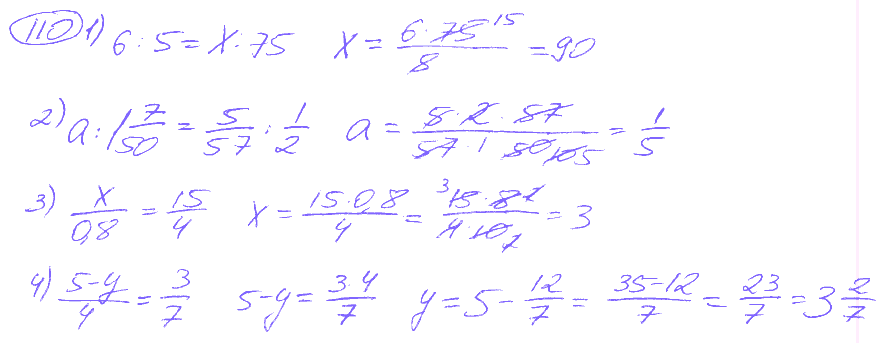 110 1) 6 : 5 = x · 75 x = 6 · 75 15 / 8 = 90
2) a : 1 7/50 = 5/57 : 1/2 a = 5 · 2 · 57 / 57 · 1 50 10 5 = 1/5
3) x/0,8 = 15/4 x = 15 · 0,8 / 4 = 3 15 · 8 2 / 4 · 10 2 = 3
4) 5-y/4 = 3/7 5-y = 3·4/7 y = 5 - 12/7 = 35-12/7 = 23/7 = 3 2/7